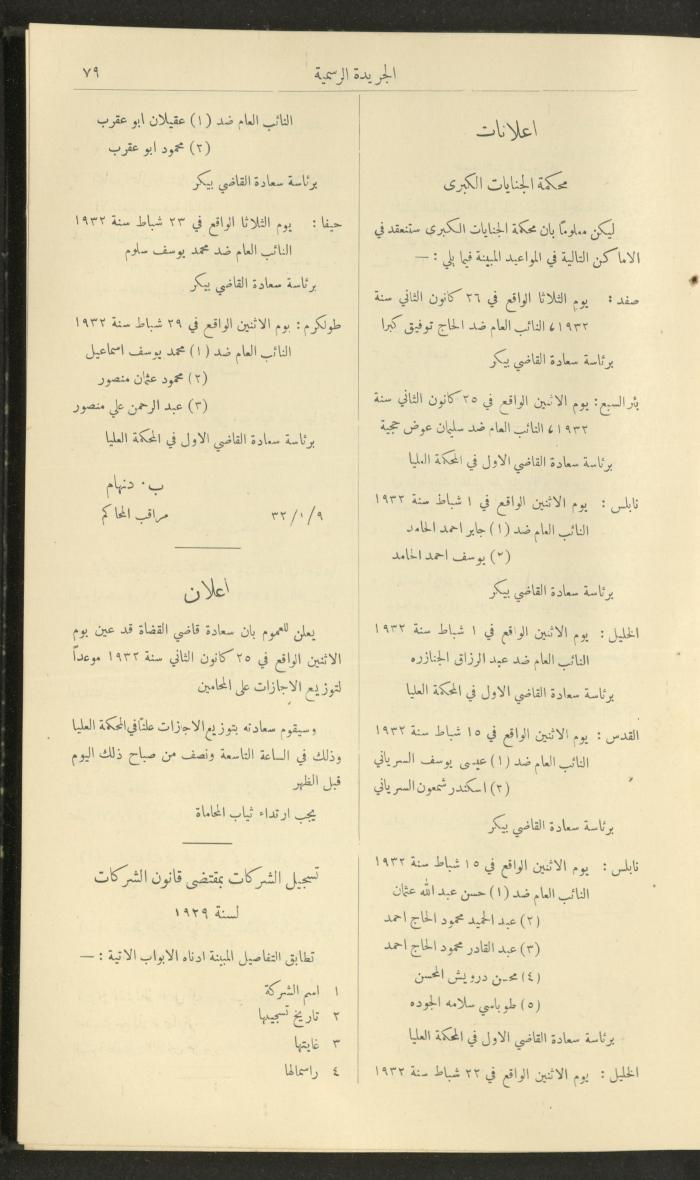 الجريدة الرسمية ٧٩
اعلانات
محكمة الجنايات الكبرى
ليكن معلومًا بان محكمة الجنايات الكبرى ستنعقد في
الاماكن التالية في المواعيد المبينة فيما يلي : —
صفد : يوم الثلاثا الواقع في ٢٦ كانون الثاني سنة
١٩٣٢ ، النائب العام ضد الحاج توفيق كبرا
برئاسة سعادة القاضي بيكر
بئر السبع : يوم الاثنين الواقع في ٢٥ كانون الثاني سنة
١٩٣٢ ، النائب العام ضد سليمان عوض حجية
برئاسة سعادة القاضي الاول في المحكمة العليا
نابلس : يوم الاثنين الواقع في ١ شباط سنة ١٩٣٢
النائب العام ضد (١) جابر احمد الحامد
(٢) يوسف احمد الحامد
برئاسة سعادة القاضي بيكر
الخليل : يوم الاثنين الواقع في ١ شباط سنة ١٩٣٢
النائب العام ضد عبد الرزاق الجنازره
برئاسة سعادة القاضي الاول في المحكمة العليا
القدس : يوم الاثنين الواقع في ١٥ شباط سنة ١٩٣٢
النائب العام ضد (١) عيسى يوسف السرياني
(٢) اسكندر شمعون السرياني
برئاسة سعادة القاضي بيكر
نابلس : يوم الاثنين الواقع في ١٥ شباط سنة ١٩٣٢
النائب العام ضد (١) حسن عبد الله عثمان
(٢) عبد الحميد محمود الحاج احمد
(٣) عبد القادر محمود الحاج احمد
(٤) محسن درويش المحسن
(٥) طوباسي سلامه الجوده
برئاسة سعادة القاضي الاول في المحكمة العليا
الخليل : يوم الاثنين الواقع في ٢٢ شباط سنة ١٩٣٢
النائب العام ضد (١) عقيلان ابو عقرب
(٢) محمود ابو عقرب
برئاسة سعادة القاضي بيكر
حيفا : يوم الثلاثا الواقع في ٢٣ شباط سنة ١٩٣٢
النائب العام ضد محمد يوسف سلوم
برئاسة سعادة القاضي بيكر
طولكرم : يوم الاثنين الواقع في ٢٩ شباط سنة ١٩٣٢
النائب العام ضد (١) محمد يوسف اسماعيل
(٢) محمود عثمان منصور
(٣) عبد الرحمن علي منصور
برئاسة سعادة القاضي الاول في المحكمة العليا
ب. دنهام
٣٢/١/٩ مراقب المحاكم
اعلان
يعلن للعموم بان سعادة قاضي القضاة قد عين يوم
الاثنين الواقع في ٢٥ كانون الثاني سنة ١٩٣٢ موعداً
لتوزيع الاجازات على المحامين
وسيقوم سعادته بتوزيع الاجازات علناً في المحكمة العليا
وذلك في الساعة التاسعة ونصف من صباح ذلك اليوم
قبل الظهر
يجب ارتداء ثياب المحاماة
تسجيل الشركات بمقتضى قانون الشركات
لسنة ١٩٢٩
تطابق التفاصيل المبينة ادناه الابواب الاتية : —
١ اسم الشركة
٢ تاريخ تسجيلها
٣ غايتها
٤ راسمالها